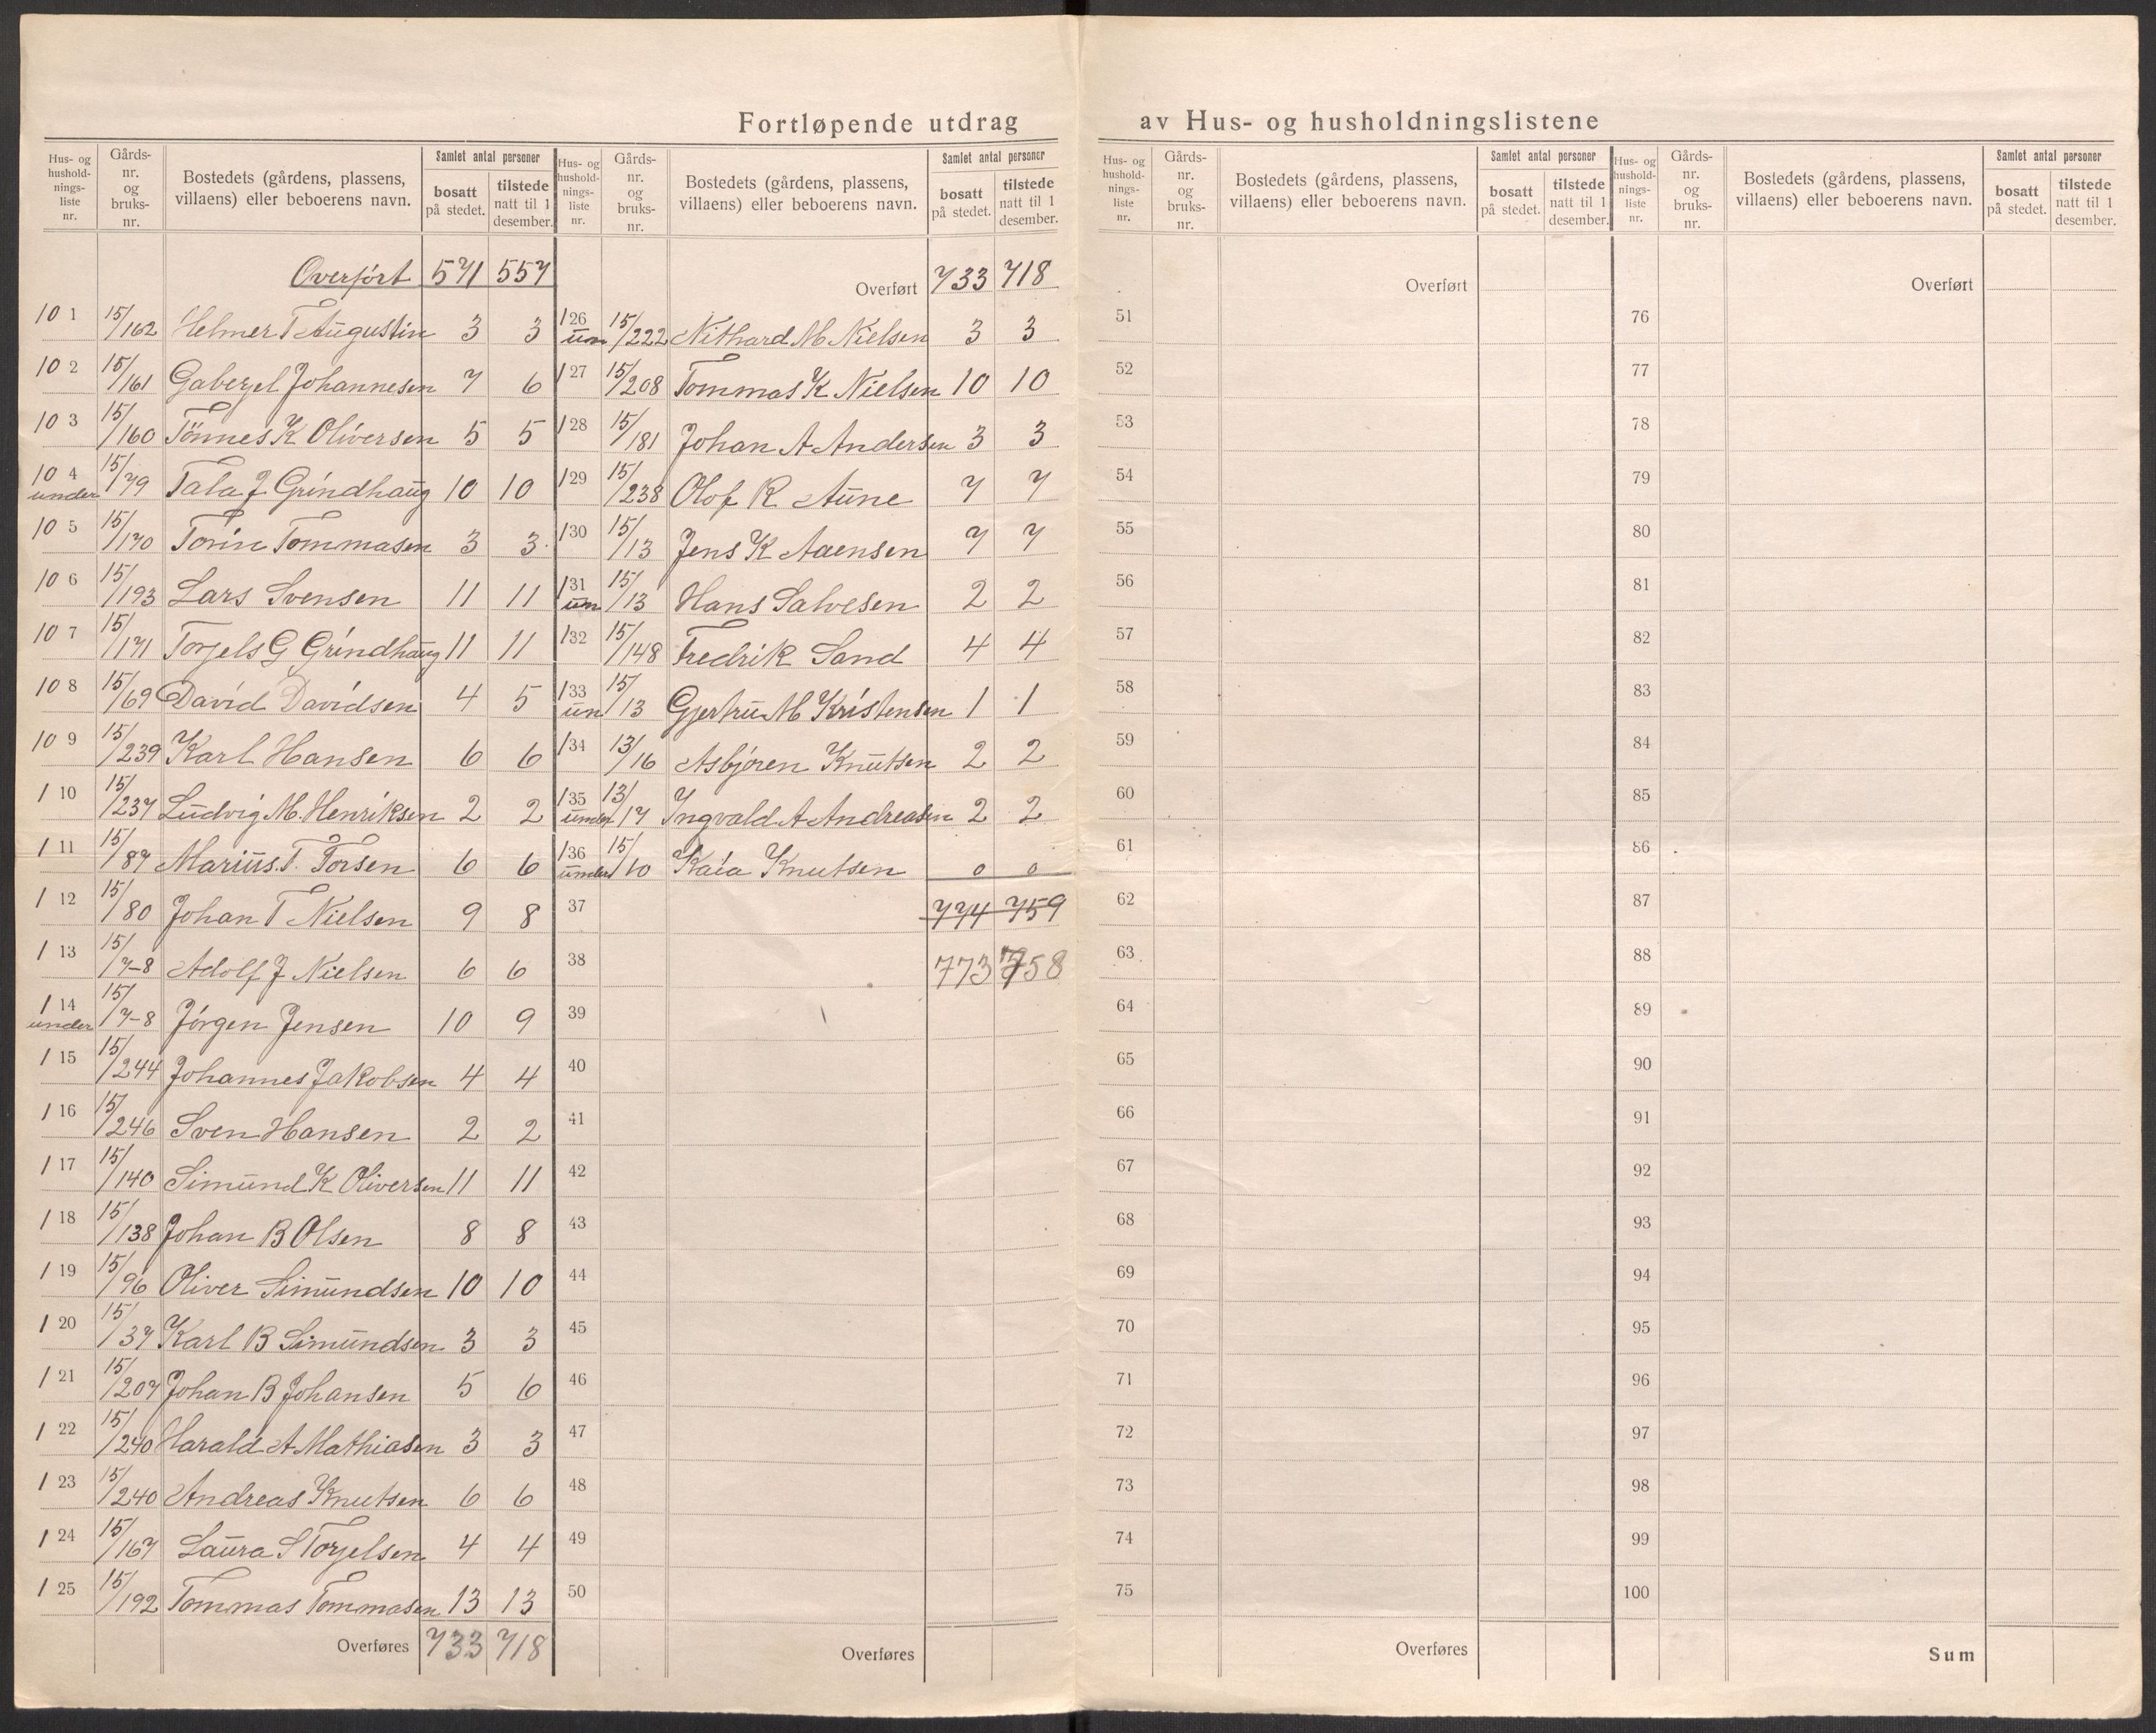 Fortløpende utdrag av Hus- og husholdningslistene
Hus- og hushold- nings- liste nr. | Gårds- nr. og bruks- nr. | Bostedets (gårdens, plassens, villaens) eller beboerens navn. | Samlet antal personer | bosatt på stedet. | tilstede natt til 1 desember.
Overført 571 557
101 15/162 Helmer T Augustin 3 3
102 15/161 Gaberjel Johannesen 7 6
103 15/160 Tönnes K Oliversen 5 5
104 under 15/79 Tala J Grindhaug 10 10
105 15/170 Torin Tommasen 3 3
106 15/193 Lars Svensen 11 11
107 15/171 Torjels G Grindhaug 11 11
108 15/69 David Davidsen 4 5
109 15/239 Karl Hansen 6 6
110 15/237 Ludvig M. Henriksen 2 2
111 15/87 Marius. T. Torsen 6 6
112 15/80 Johan T Nielsen 9 8
113 15/7-8 Adolf J Nielsen 6 6
114 under 15/7-8 Jörgen Jensen 10 9
115 15/244 Johannes Jakobsen 4 4
116 15/246 Sven Hansen 2 2
117 15/140 Simund K Oliversen 11 11
118 15/138 Johan B Olsen 8 8
119 15/96 Oliver Simundsen 10 10
120 15/37 Karl B Simundsen 3 3
121 15/207 Johan B Johansen 5 6
122 15/240 Harald A Mathiasen 3 3
123 15/240 Andreas Knutsen 6 6
124 15/167 Laura S Torjelsen 4 4
125 15/192 Tommas Tommasen 13 13
Overføres 733 718
Hus- og hushold- nings- liste nr. | Gårds- nr. og bruks- nr. | Bostedets (gårdens, plassens, villaens) eller beboerens navn. | Samlet antal personer | bosatt på stedet. | tilstede natt til 1 desember.
Overført 733 718
126 un 15/222 Nithard M Nielsen 3 3
127 15/208 Tommas K Nielsen 10 10
128 15/181 Johan A Andersen 3 3
129 15/238 Olof R Aune 7 7
130 15/13 Jens K Aaensen 7 7
131 un 15/13 Hans Salvesen 2 2
132 15/148 Fredrik Sand 4 4
133 un 15/13 Gjertru M Kristensen 1 1
134 13/16 Asbjören Knutsen 2 2
135 under 13/17 Ingvald A Andreasen 2 2
136 under 15/10 Kaia Knutsen 0 0
37 774 759
38 773 758
39
40
41
42
43
44
45
46
47
48
49
50
Overføres
Hus- og hushold- nings- liste nr. | Gårds- nr. og bruks- nr. | Bostedets (gårdens, plassens, villaens) eller beboerens navn. | Samlet antal personer | bosatt på stedet. | tilstede natt til 1 desember.
Overført
51
52
53
54
55
56
57
58
59
60
61
62
63
64
65
66
67
68
69
70
71
72
73
74
75
Overføres
Hus- og hushold- nings- liste nr. | Gårds- nr. og bruks- nr. | Bostedets (gårdens, plassens, villaens) eller beboerens navn. | Samlet antal personer | bosatt på stedet. | tilstede natt til 1 desember.
Overført
76
77
78
79
80
81
82
83
84
85
86
87
88
89
90
91
92
93
94
95
96
97
98
99
100
Sum